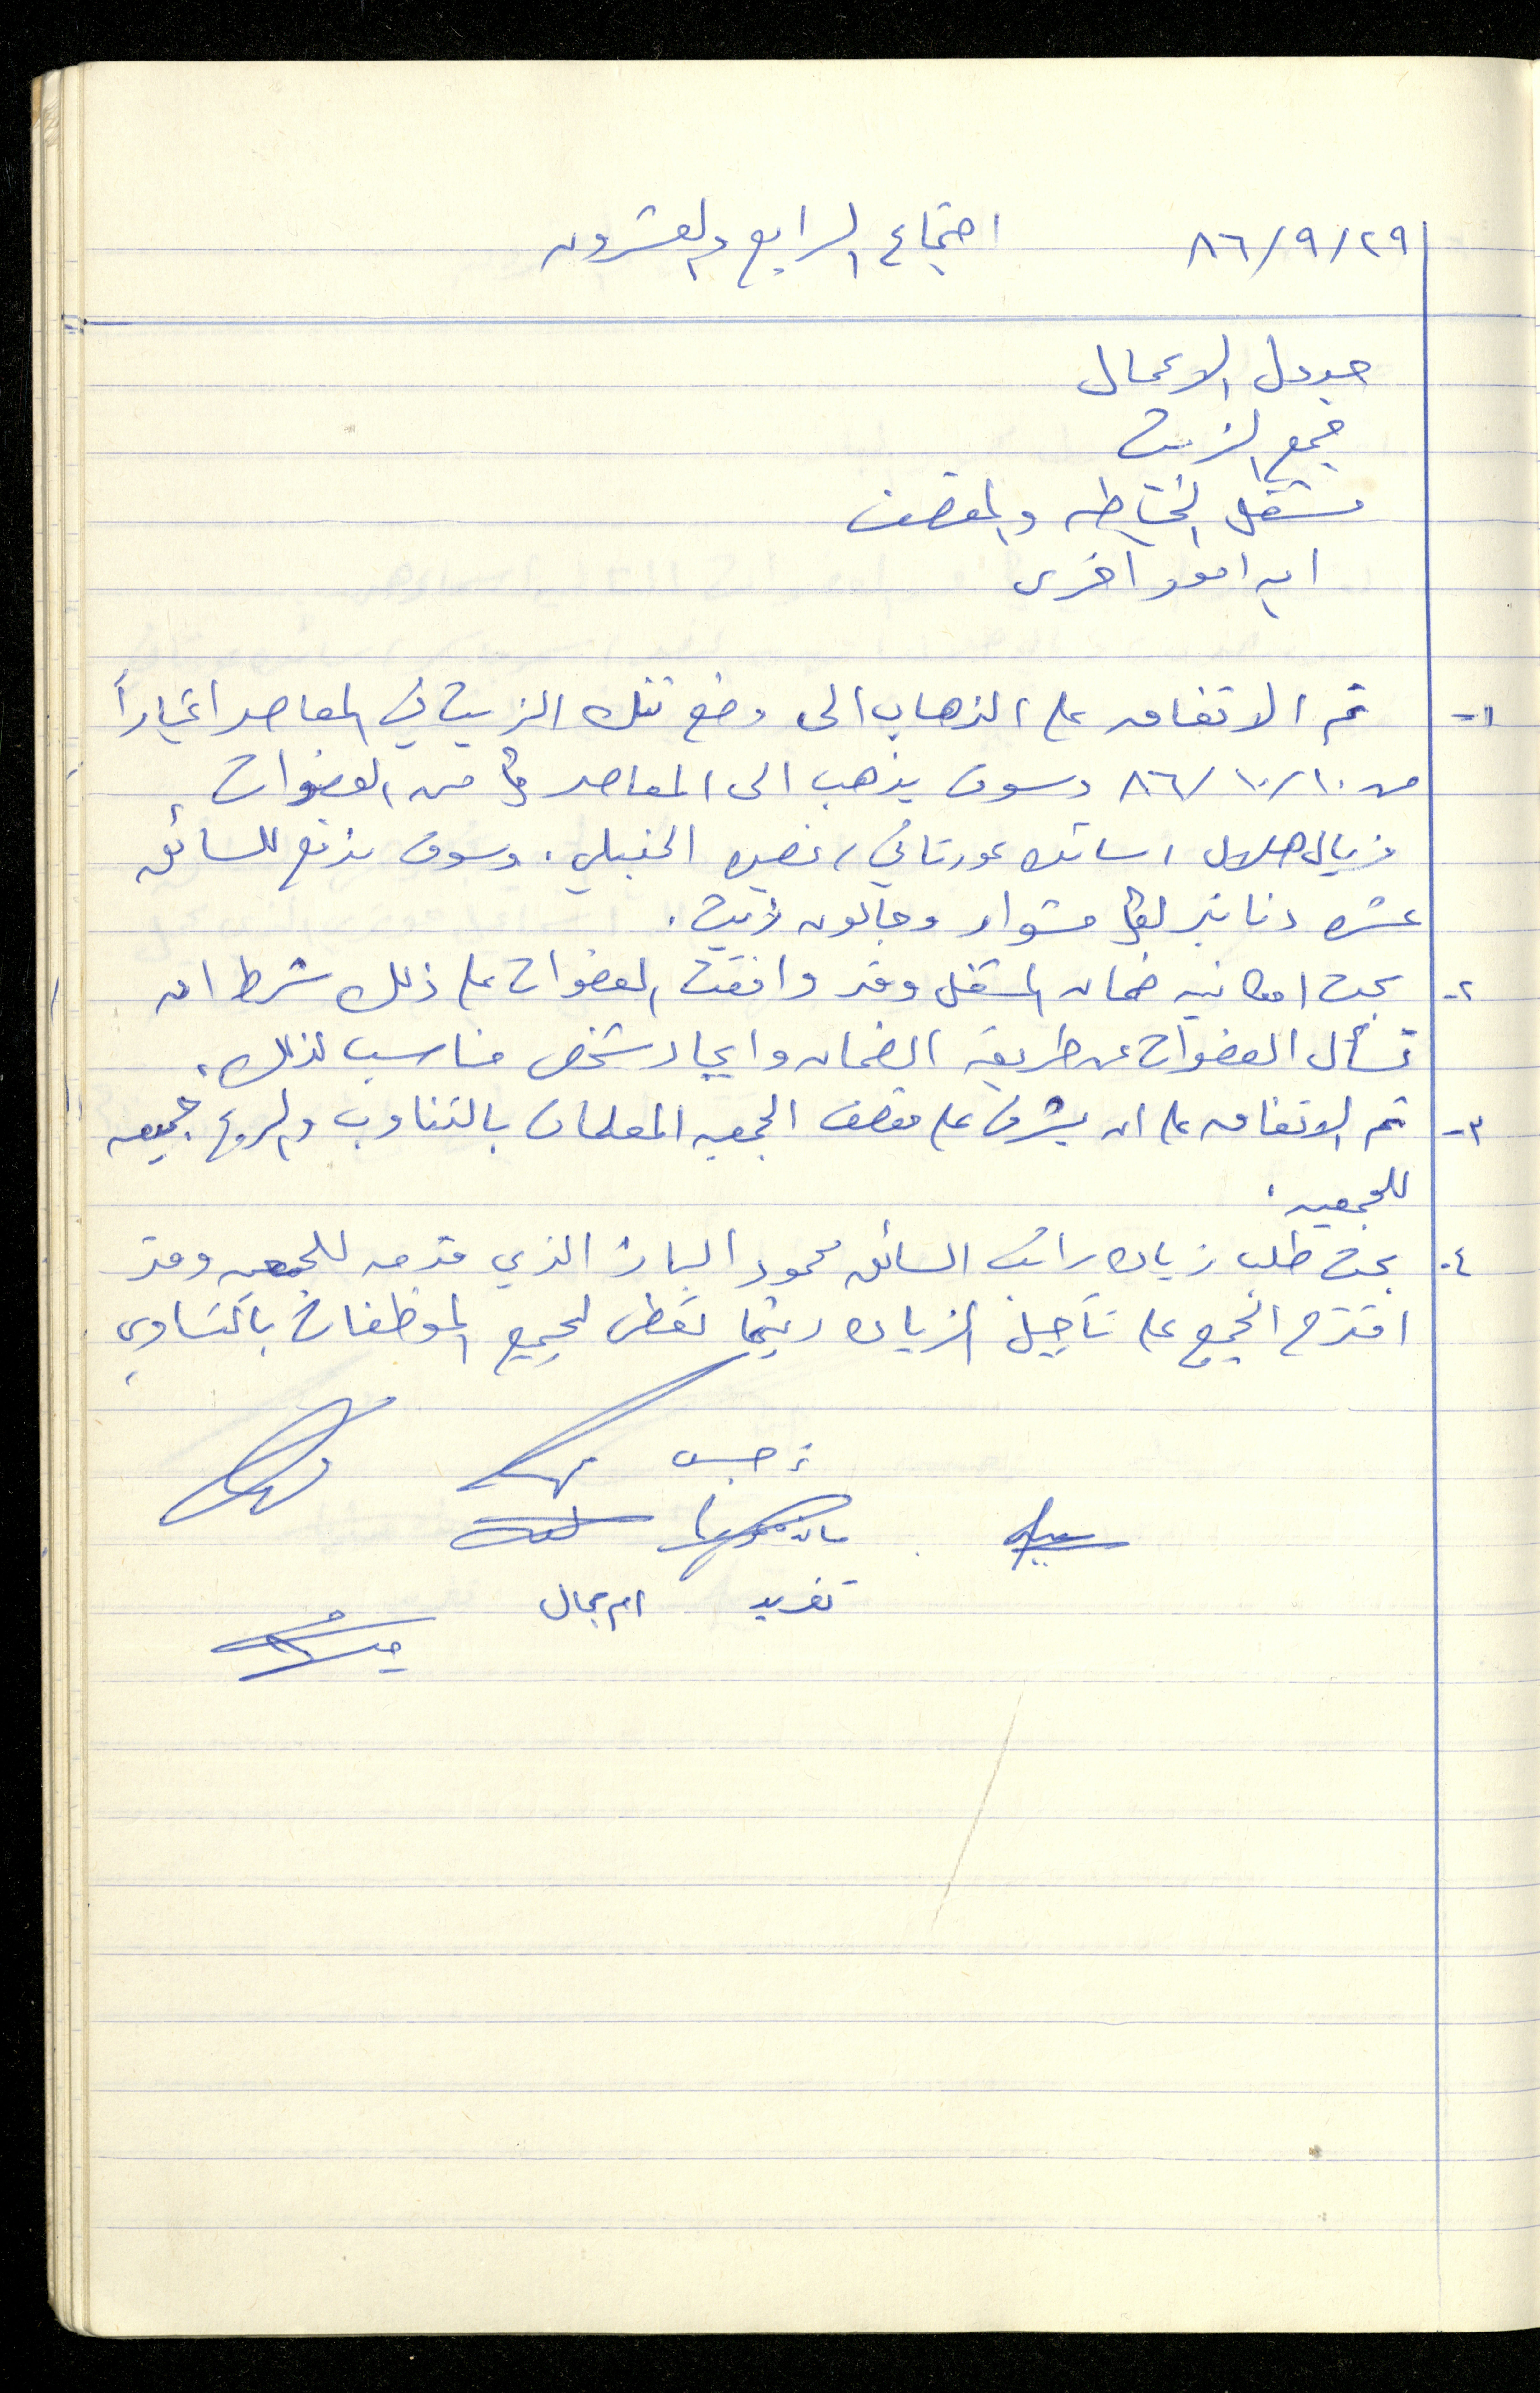 ٨٦/٩/٢٩ اجتماع الرابع والعشرون
جدول الاعمال
جمع الزيت
مشغل الخياطه والمقصف
ايه امور اخرى
١- تم الاتفاق على الذهاب الى وضع تنك الزيت في المعاصر اعتباراً
من ٨٦/١٠/١٠ وسوف يذهب الى المعاصر كل من العضوات
فريال هلال ، سائده عورتاني ، نصيره الحنبلي . وسوف ندفع للسائق
عشره دنانير لكل مشوار وجالون زيت .
٢- بحث امكانيه ضمان المشغل وقد وافقت العضوات على ذلك شرط ان
تسأل العضوات عن طريقة الضمان وايجاد شخص مناسب لذلك .
٣- تم الاتفاق على ان يشرف على مقصف الجمعيه المعلمات بالتناوب والريع جميعه
للجمعيه .
٤- بحث طلب زياده راتب السائق محمود الباز الذي قدمه للجمعيه وقد
اقترح الجميع على تأجيل الزياده ريثما تعطى لجميع الموظفات بالتساوي
نرجس
تغريد ام جمال